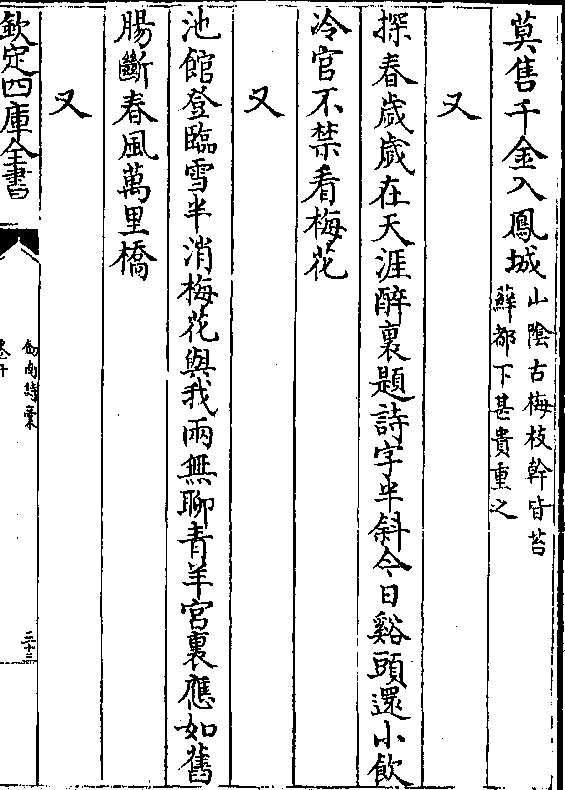 莫售千金入鳳城山隂古梅枝幹皆苔
蘚都下甚貴重之
又
探春歲歲在天涯醉裏題詩字半斜今日谿頭還小飲
冷官不禁看梅花
又
池館登臨雪半消梅花與我兩無聊青羊宮裏應如舊
腸斷春風萬里橋
又
欽定四庫全書
劒南詩稾
三十二